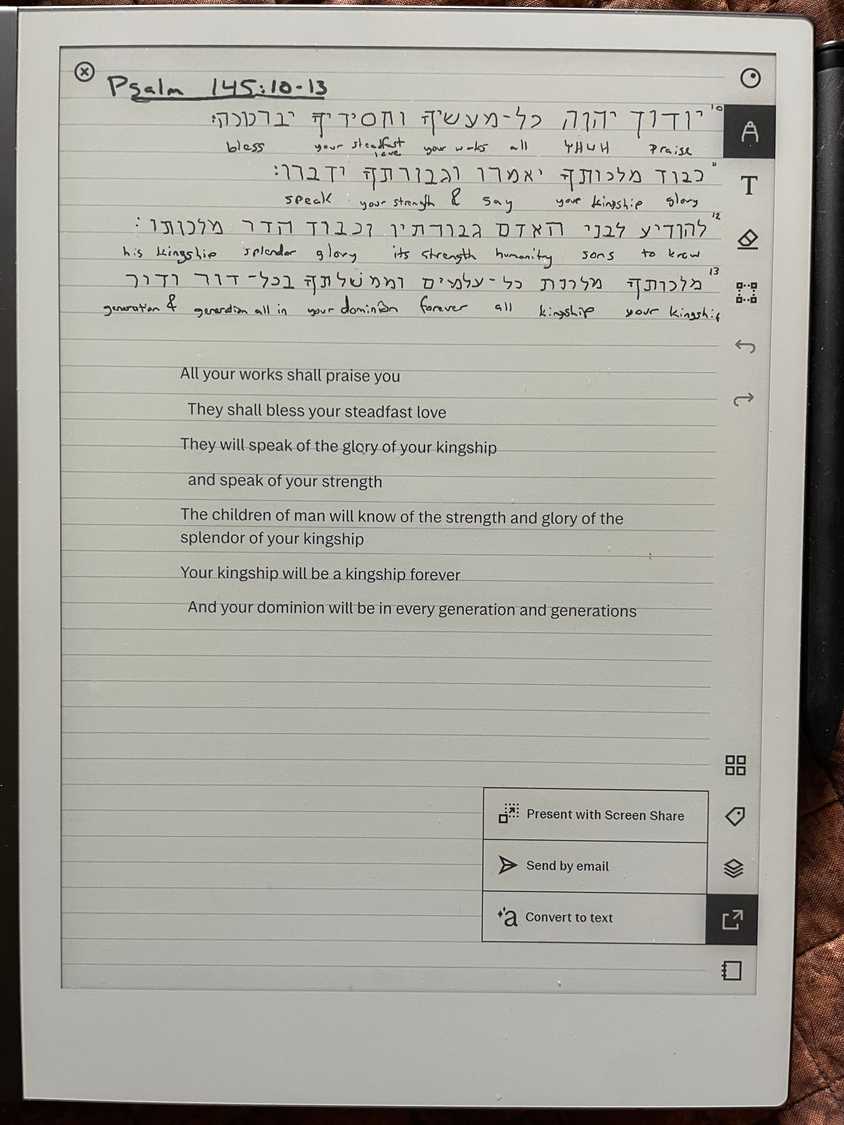 Psalm 145:10-13
10 יודוך יהוה כל-מעשיך וחסידיך יברכוכה:
bless your steadfast love your works all YHWH praise
11 כבוד מלכותך יאמרו וגבורתך ידברו:
speak your strength & say your kingship glory
12 להודיע לבני האדם גבורתיו וכבוד הדר מלכותו:
his kingship splendor glory its strength humanity sons to know
13 מלכותך מלכות כל-עלמים וממשלתך בכל-דור ודור
generation & generation all in your dominion forever all kingship your kingship
All your works shall praise you
They shall bless your steadfast love
They will speak of the glory of your kingship
and speak of your strength
The children of man will know of the strength and glory of the
splendor of your kingship
Your kingship will be a kingship forever
And your dominion will be in every generation and generations
T
Present with Screen Share
Send by email
Convert to text